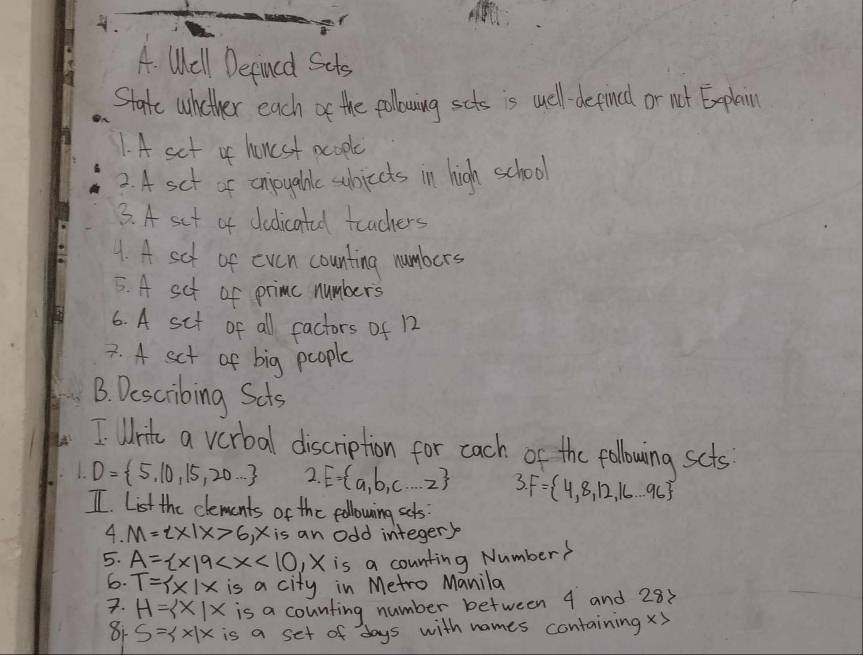 4.
A. Well Defined Sets
State whether each of the following sets is well-defined or not Explain
1. A set of honest people
2. A set of enjoyable subjects in high school
3. A set of dedicated teachers
4. A set of even counting numbers
5. A set of prime numbers
6. A set of all factors of 12
7. A set of big people
B. Describing Sets
I. Write a verbal discription for each of the following sets:
1. D = {5, 10, 15, 20...} 2. E = {a, b, c....z} 3. F = {4, 8, 12, 16...96}
II. List the elements of the following sets:
4. M = {x|x > 6, x is an odd integer}
5. A = {x|9 < x < 10, x is a counting Number}
6. T = {x|x is a city in Metro Manila
7. H = {x|x is a counting number between 4 and 28}
8. S = {x|x is a set of days with names containing x}